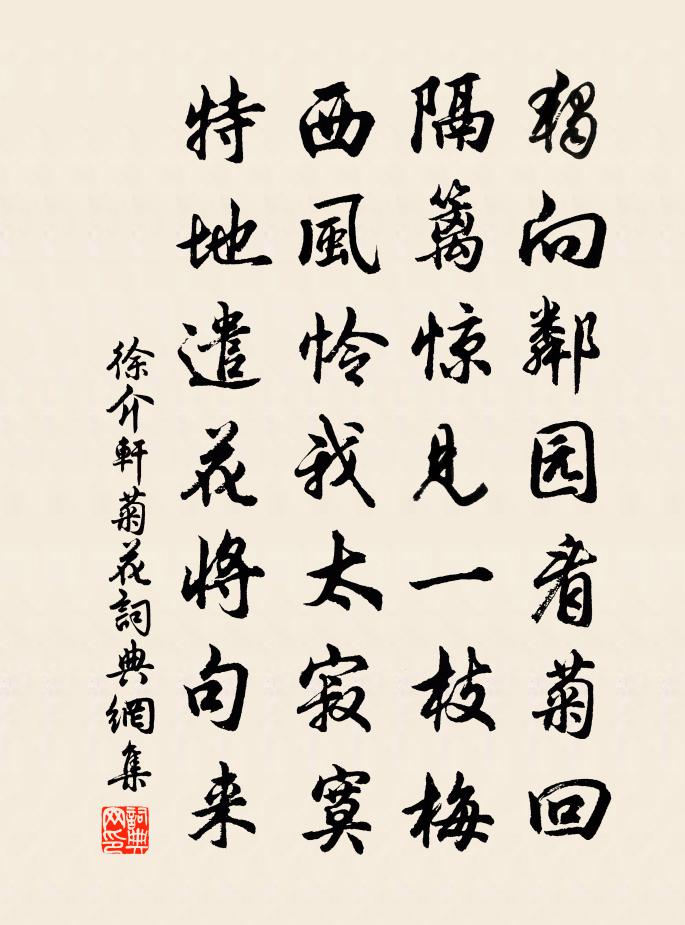 獨向鄰园看菊回
隔籬惊見一枝梅
西風怜我太寂寞
特地遣花將句来
徐介軒菊花詞典網集
詞典
网印